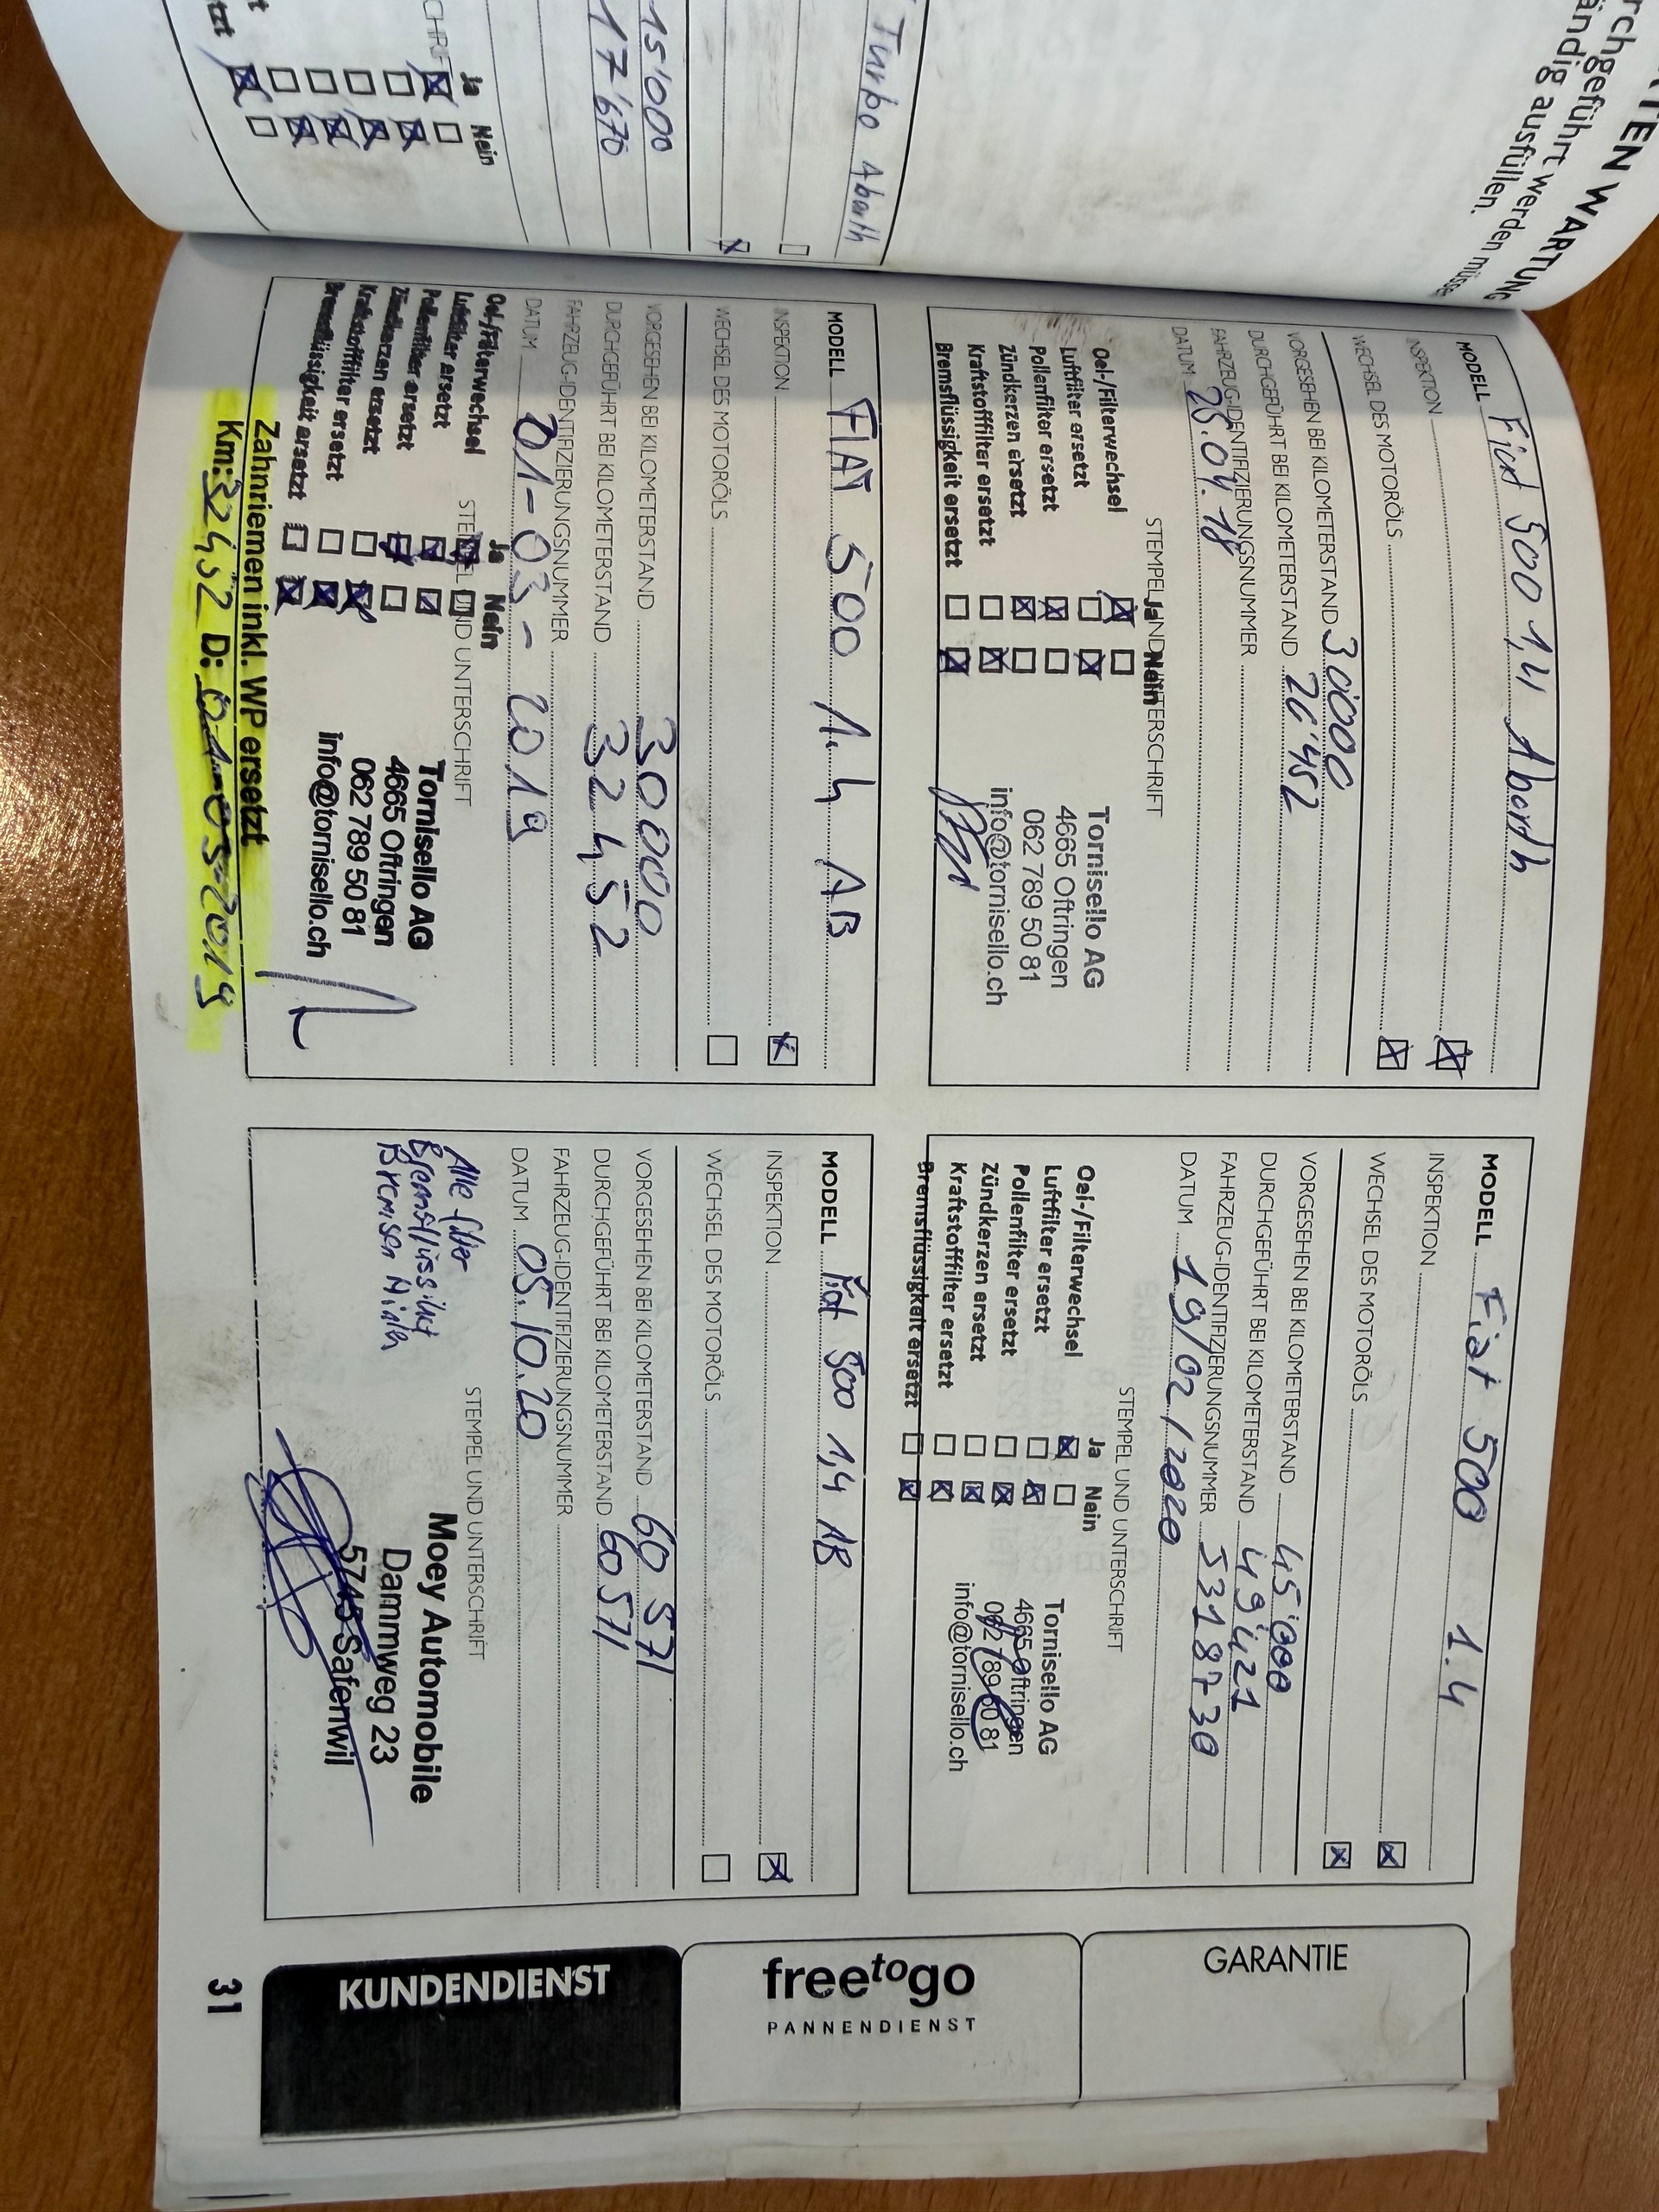 RTEN WARTUNG
rchgeführt werden müsse
ändig ausfüllen.
Turbo Abarth
15'000
17'670
Ja Nein
MODELL Fiat 500 1,4 Abarth
INSPEKTION
WECHSEL DES MOTORÖLS
VORGESEHEN BEI KILOMETERSTAND 30'000
DURCHGEFÜHRT BEI KILOMETERSTAND 26'452
FAHRZEUG-IDENTIFIZIERUNGSNUMMER
DATUM 25.04.18
STEMPEL UND UNTERSCHRIFT
Ja Nein
Oel-/Filterwechsel
Luftfilter ersetzt
Pollenfilter ersetzt
Zündkerzen ersetzt
Kraftstofffilter ersetzt
Bremsflüssigkeit ersetzt
Tornisello AG
4665 Oftringen
062 789 50 81
info@tornisello.ch
MODELL Fiat 500 1.4
INSPEKTION
WECHSEL DES MOTORÖLS
VORGESEHEN BEI KILOMETERSTAND 45'000
DURCHGEFÜHRT BEI KILOMETERSTAND 49'421
FAHRZEUG-IDENTIFIZIERUNGSNUMMER 53187730
DATUM 19/02/2020
STEMPEL UND UNTERSCHRIFT
Ja Nein
Oel-/Filterwechsel
Luftfilter ersetzt
Pollenfilter ersetzt
Zündkerzen ersetzt
Kraftstofffilter ersetzt
Bremsflüssigkeit ersetzt
Tornisello AG
4665 Oftringen
062 789 50 81
info@tornisello.ch
MODELL FIAT 500 1.4 AB
INSPEKTION
WECHSEL DES MOTORÖLS
VORGESEHEN BEI KILOMETERSTAND 30000
DURCHGEFÜHRT BEI KILOMETERSTAND 32452
FAHRZEUG-IDENTIFIZIERUNGSNUMMER
DATUM 01-03-2019
STEMPEL UND UNTERSCHRIFT
Ja Nein
Oel-/Filterwechsel
Luftfilter ersetzt
Pollenfilter ersetzt
Zündkerzen ersetzt
Kraftstofffilter ersetzt
Bremsflüssigkeit ersetzt
Tornisello AG
4665 Oftringen
062 789 50 81
info@tornisello.ch
Zahnriemen inkl. WP ersetzt
Km: 32452 D: 01-03-2019
MODELL Fiat 500 1,4 AB
INSPEKTION
WECHSEL DES MOTORÖLS
VORGESEHEN BEI KILOMETERSTAND 60 571
DURCHGEFÜHRT BEI KILOMETERSTAND 60 571
FAHRZEUG-IDENTIFIZIERUNGSNUMMER
DATUM 05.10.20
STEMPEL UND UNTERSCHRIFT
Alle
Bremsen
Moey Automobile
Dammweg 23
5745 Safenwil
GARANTIE
freetogo
PANNENDIENST
KUNDENDIENST
31